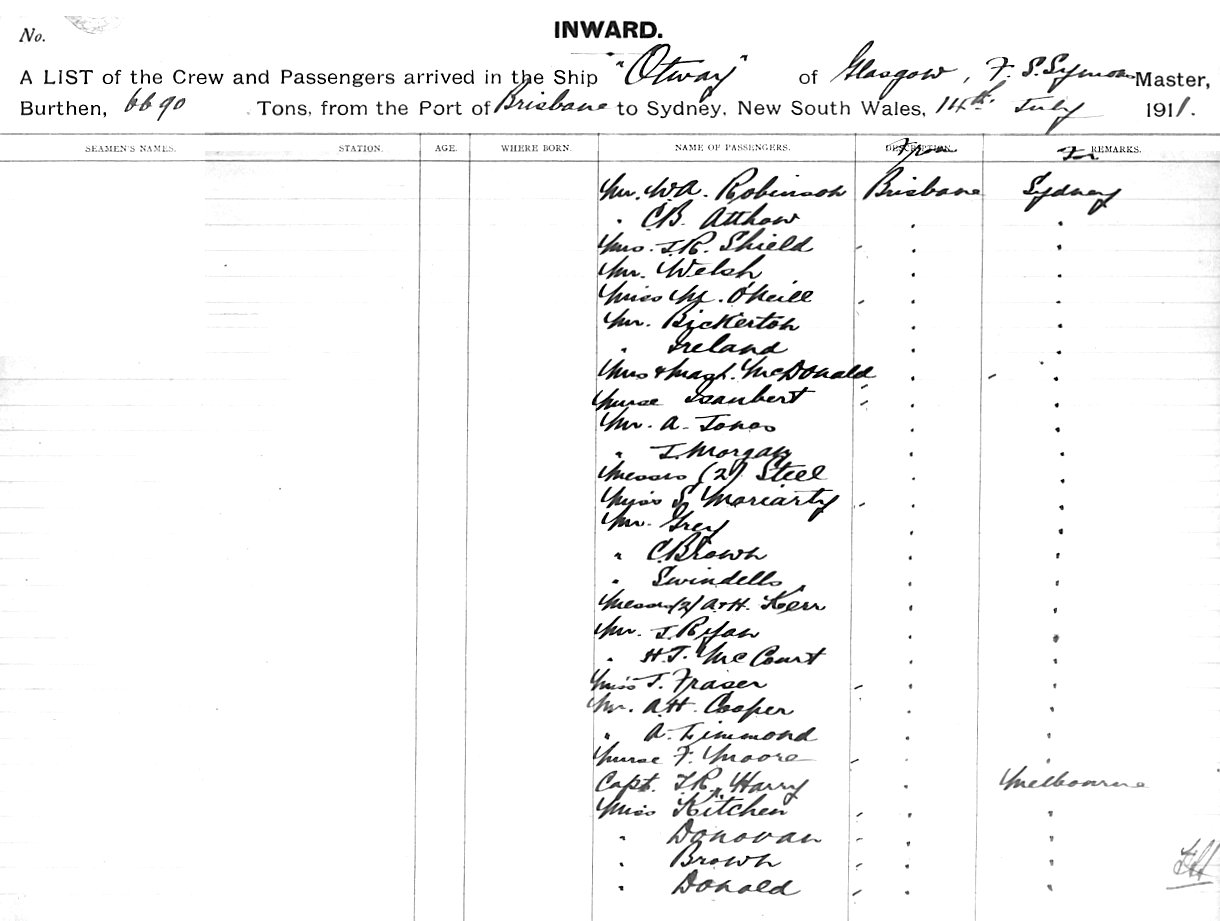 No.
INWARD.
A LIST of the Crew and Passengers arrived in the Ship "Otway" of Glasgow, F. S. Symons Master,
Burthen, 6690 Tons, from the Port of Brisbane to Sydney, New South Wales, 14th July 1911.
SEAMEN'S NAMES. STATION. AGE. WHERE BORN. NAME OF PASSENGERS. DESCRIPTION. From For REMARKS.
Mr. W.A. Robinson Brisbane Sydney
" C.B. Atthow " "
Mrs. J.R. Shield " "
Mr. Welsh " "
Miss M. O'Neill " "
Mr. Bickerton " "
" Ireland " "
Mrs & Magt. McDonald " "
Nurse Isambert " "
Mr. A. Jones " "
" J. Morgan " "
Messrs (2) Steel " "
Miss S. Moriarty " "
Mr. Grey " "
" C. Brown " "
" Swindells " "
Messrs (2) A & H. Kerr " "
Mr. J. Ryan " "
" H.J. McCourt " "
Miss J. Fraser " "
Mr. A.H. Cooper " "
" A. Limmond " "
Nurse F. Moore " "
Capt. J.R. Harry " Melbourne
Miss Kitchen " "
" Donovan " "
" Brown " "
" Donald " "